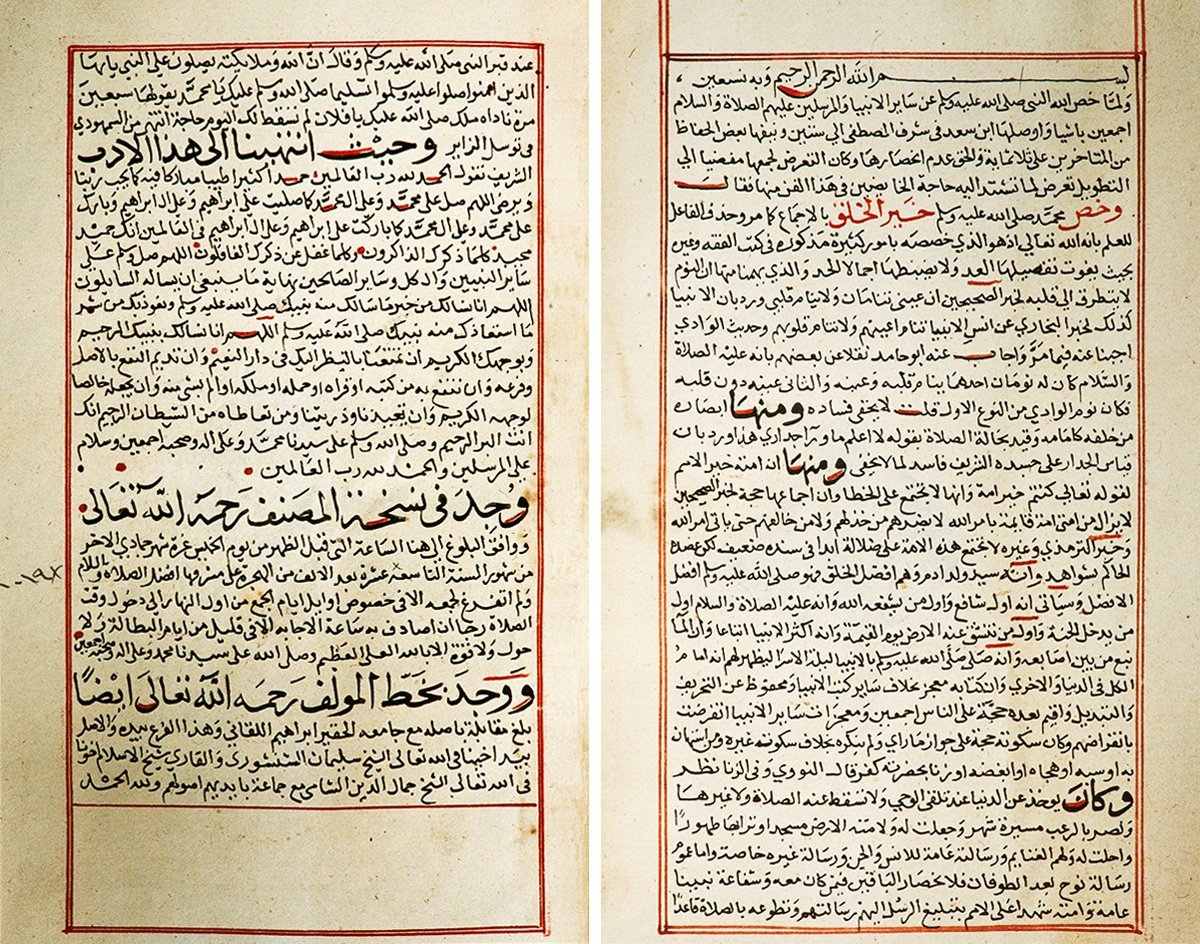 بسم الله الرحمن الرحيم وبه نستعين
ولما خص الله النبي صلى الله عليه وسلم عن ساير الانبيا والمرسلين عليهم الصلاة والسلام
اجمعين باشيا واوصلها ابن سعد في شرف المصطفى الي ستين ونيفها بعض الحفاظ
من المتاخرين على ثلاثماية والحق عدم انحصارها وكان التعرض لجمعها مفضيا الي
التطويل تعرض لما تشتد اليه حاجة الخايضين في هذا الفن منها فقال
وخص محمد صلى الله عليه وسلم خير الخلق بالاجماع كما مر وحذف الفاعل
للعلم بانه الله تعالى اذ هو الذي خصصه بامور كثيرة مذكورة في كتب الفقه وغيره
بحيث يفوت تفصيلها العد ولا يضبطها اجمالا الحد والذي يهمنا منها ان النوم
لا يتطرق الي قلبه لخبر الصحيحين ان عيني تنامان ولا ينام قلبي ورد بان الانبيا
كذلك لخبر البخاري عن انس الانبيا تنام اعينهم ولا تنام قلوبهم وحديث الوادي
اجبنا عنه فيما مر واجاب عنه ابو حامد نقلا عن بعضهم بانه عليه الصلاة
والسلام كان له نومان احدهما ينام قلبه وعينه والثاني عينه دون قلبه
فكان نوم الوادي من النوع الاول قلت لا يخفى فساده ومنها ابصاره
من خلفه كامامه وقيد بحالة الصلاة بقوله لا اعلم ما ورا جداري هذا ورد بان
قياس الجدار على جسده الشريف فاسد لما لا يخفى ومنها ان امته خير الامم
لقوله تعالى كنتم خير امة وانها لا تجتمع على الخطا وان اجماعها حجة لخبر الصحيحين
لا يزال من امتي امة قايمة بامر الله لا يضرهم من خذلهم ولا من خالفهم حتى ياتي امر الله
وخبر الترمذي وغيره لا تجتمع هذه الامة على ضلالة ابدا في سنده ضعيف لكن عضده
الحاكم بشواهد وانه سيد ولد ادم وهم افضل الخلق فهو صلى الله عليه وسلم افضل
الافضل وسياتي انه اول شافع واول من يشفعه الله وانه عليه الصلاة والسلام اول
من يدخل الجنة واول من تنشق عنه الارض يوم القيمة وانه اكثر الانبيا اتباعا وان الما
نبع من بين اصابعه وانه صلى الله عليه وسلم بالانبيا ليلة الاسرا ليظهر لهم انه امام
الكل في الدنيا والاخرى وان كتابه معجز بخلاف ساير كتب الانبيا ومحفوظ عن التحريف
والتبديل واقيم بعده حجة على الناس اجمعين ومعجزات ساير الانبيا انقرضت
بانقراضهم وكان سكوته حجة على جواز ما راى ولم ينكره بخلاف سكوته غيره ومن استهان
به او سبه او هجاه او ابغضه او زنا بحضرته كفر قال النووي وفي الزنا نظر
وكان يوخذ عن الدنيا عند تلقي الوحي ولا تسقط عنه الصلاة ولا غيرها
ونصر بالرعب مسيرة شهر وجعلت له ولامته الارض مسجدا وترابها طهورا
واحلت له ولهم الغنايم ورسالته عامة للانس والجن ورسالة غيره خاصة واما عموم
رسالة نوح بعد الطوفان فلانحصار الباقين فيمن كان معه وشفاعة نبينا
عامة وامته شهدا على الامم بتبليغ الرسل اليهم رسالتهم وتطوعه بالصلاة قاعدا
عند قبر النبي صلى الله عليه وسلم وقال ان الله وملايكته يصلون على النبي يا يها
الذين امنوا صلوا عليه وسلموا تسليما صلى الله وسلم عليك يا محمد يقولها سبعين
مرة ناداه ملك صلى الله عليك يا فلان لم تسقط لك اليوم حاجة انتهى من السمهودي
في توسل الزاير وحيث انتهينا الى هذا الادب
الشريف نقول الحمد لله رب العالمين حمدا كثيرا طيبا مباركا فيه كما يحب ربنا
ويرضى اللهم صل على محمد وعلى ال محمد كما صليت على ابراهيم وعلى ال ابراهيم وبارك
على محمد وعلى ال محمد كما باركت على ابراهيم وعلى ال ابراهيم في العالمين انك حميد
مجيد كلما ذكرك الذاكرون وكلما غفل عن ذكرك الغافلون اللهم صل وسلم على
ساير النبيين وال كل وساير الصالحين نهاية ما ينبغي ان يساله السايلون
اللهم انا نسالك من خير ما سالك منه نبيك صلى الله عليه وسلم ونعوذ بك من شر
ما استعاذك منه نبيك صلى الله عليه وسلم اللهم انا نسالك بنبيك الرحيم
وبوجهك الكريم ان تمتعنا بالنظر اليك في دار النعيم وان تديم النفع بالاصل
وفرعه وان تنفع به من كتبه او قراه او حمله او ملكه او الم بشي منه وان تجعله خالصا
لوجهه الكريم وان يعيذنا وذريتنا ومن تعاطاه من الشيطان الرجيم انك
انت البر الرحيم وصلى الله وسلم على سيدنا محمد وعلى اله وصحبه اجمعين وسلام
على المرسلين والحمد لله رب العالمين
وجد في نسخة المصنف رحمه الله تعالى
ووافق البلوغ الي هنا الساعة التي قبل الظهر من يوم الخميس غرة شهر جمادي الاخر
من شهور السنة التاسعة عشرة بعد الالف من الهجرة على مشرفها افضل الصلاة والسلام
ولم اتفرغ لجمعه الا في خصوص اوايل ايام الجمع من اول النهار الى دخول وقت
الصلاة رجا ان اصادف به ساعة الاجابه الا في قليل من ايام البطالة ولا
حول ولا قوة الا بالله العلي العظيم وصلى الله على سيدنا محمد وعلى اله وصحبه اجمعين
ووجد بخط المولف رحمه الله تعالى ايضا
بلغ مقابلة باصله مع جامعه الحقير ابراهيم اللقاني وهذا الفرع بيده والاصل
بيد اخينا في الله تعالى الشيخ سليمان السنشوري والقاري شيخ الاسلام اخونا
في الله تعالى الشيخ جمال الدين الشامي مع جماعة بايديهم اصولهم ولله الحمد